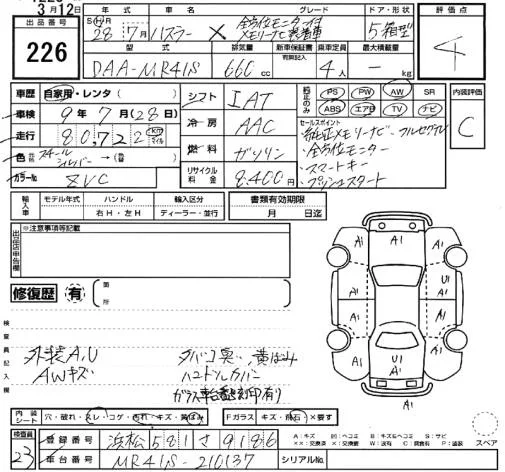 3月12日
出品番号
226
年式 車名 グレード ドア・形状
28年7月 ハスラー X 全方位モニター付メモリーナビ装着車 5 箱型
評価点
4
型式 排気量 新車保証書 乗車定員 最大積載量
有無記入
DAA-MR41S 660cc 4人 － kg
車歴 自家用・レンタ( )
車検 9年7月(28日)
走行 80,722 Km マイル
色 スチールシルバー→( )
カラーNo ZVC
シフト IAT
冷房 AAC
燃料 ガソリン
リサイクル料金 8.400円
純正のみ
PS PW AW SR
ABS エアB TV ナビ
セールスポイント
・純正メモリーナビ・フルセグTV
・全方位モニター
・スマートキー
・プッシュスタート
内装評価
C
輸入車
モデル年式 ハンドル 輸入区分
右H・左H ディーラー・並行
書類有効期限
月 日迄
出品店申告欄
※注意事項等記載
修復歴 有 箇所
検査員記入欄
外装A,U
AWキズ
タバコ臭い、黄ばみ
ハンドルカバー
ガラス車台番号刻印有り
A1 A1 A1 A1 A1 U1 A1 A1 A1 U1 A1 A1
内装シート 穴・破れ・スレ・コゲ・汚れ・キズ・黄ばみ
Fガラス キズ・飛石・X要す
検査員
23
登録番号 浜松581さ9186
車台番号 MR41S-210137
シリアルNo.
A:キズ
スペア